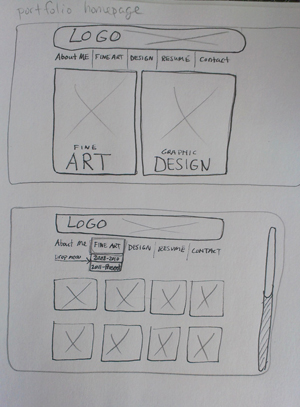 portfolio homepage
LOGO
About Me FINE ART DESIGN RESUME Contact
FINE ART
GRAPHIC DESIGN
LOGO
About Me FINE ART DESIGN RESUME CONTACT